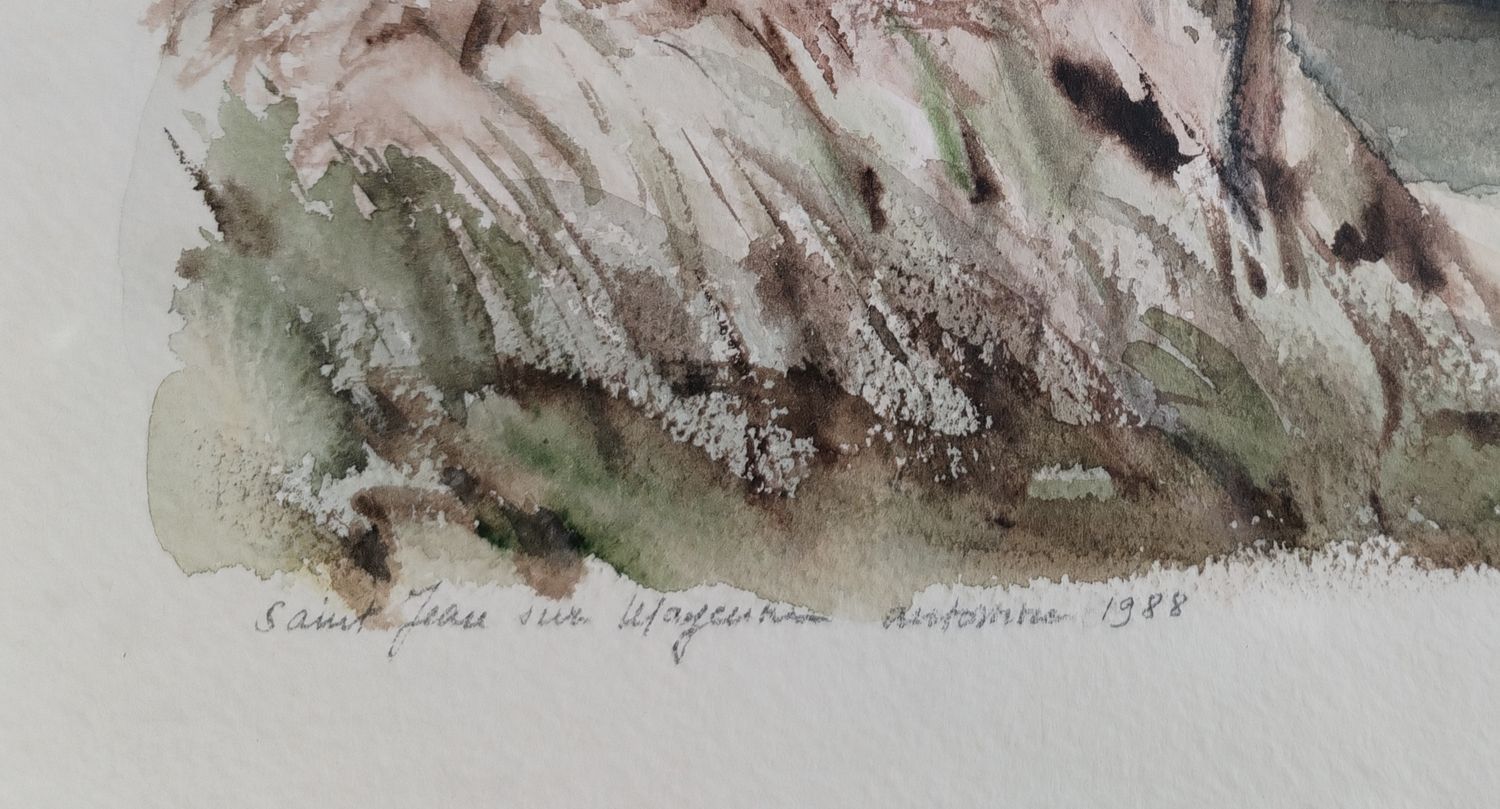 Saint Jean sur Mayenne automne 1988